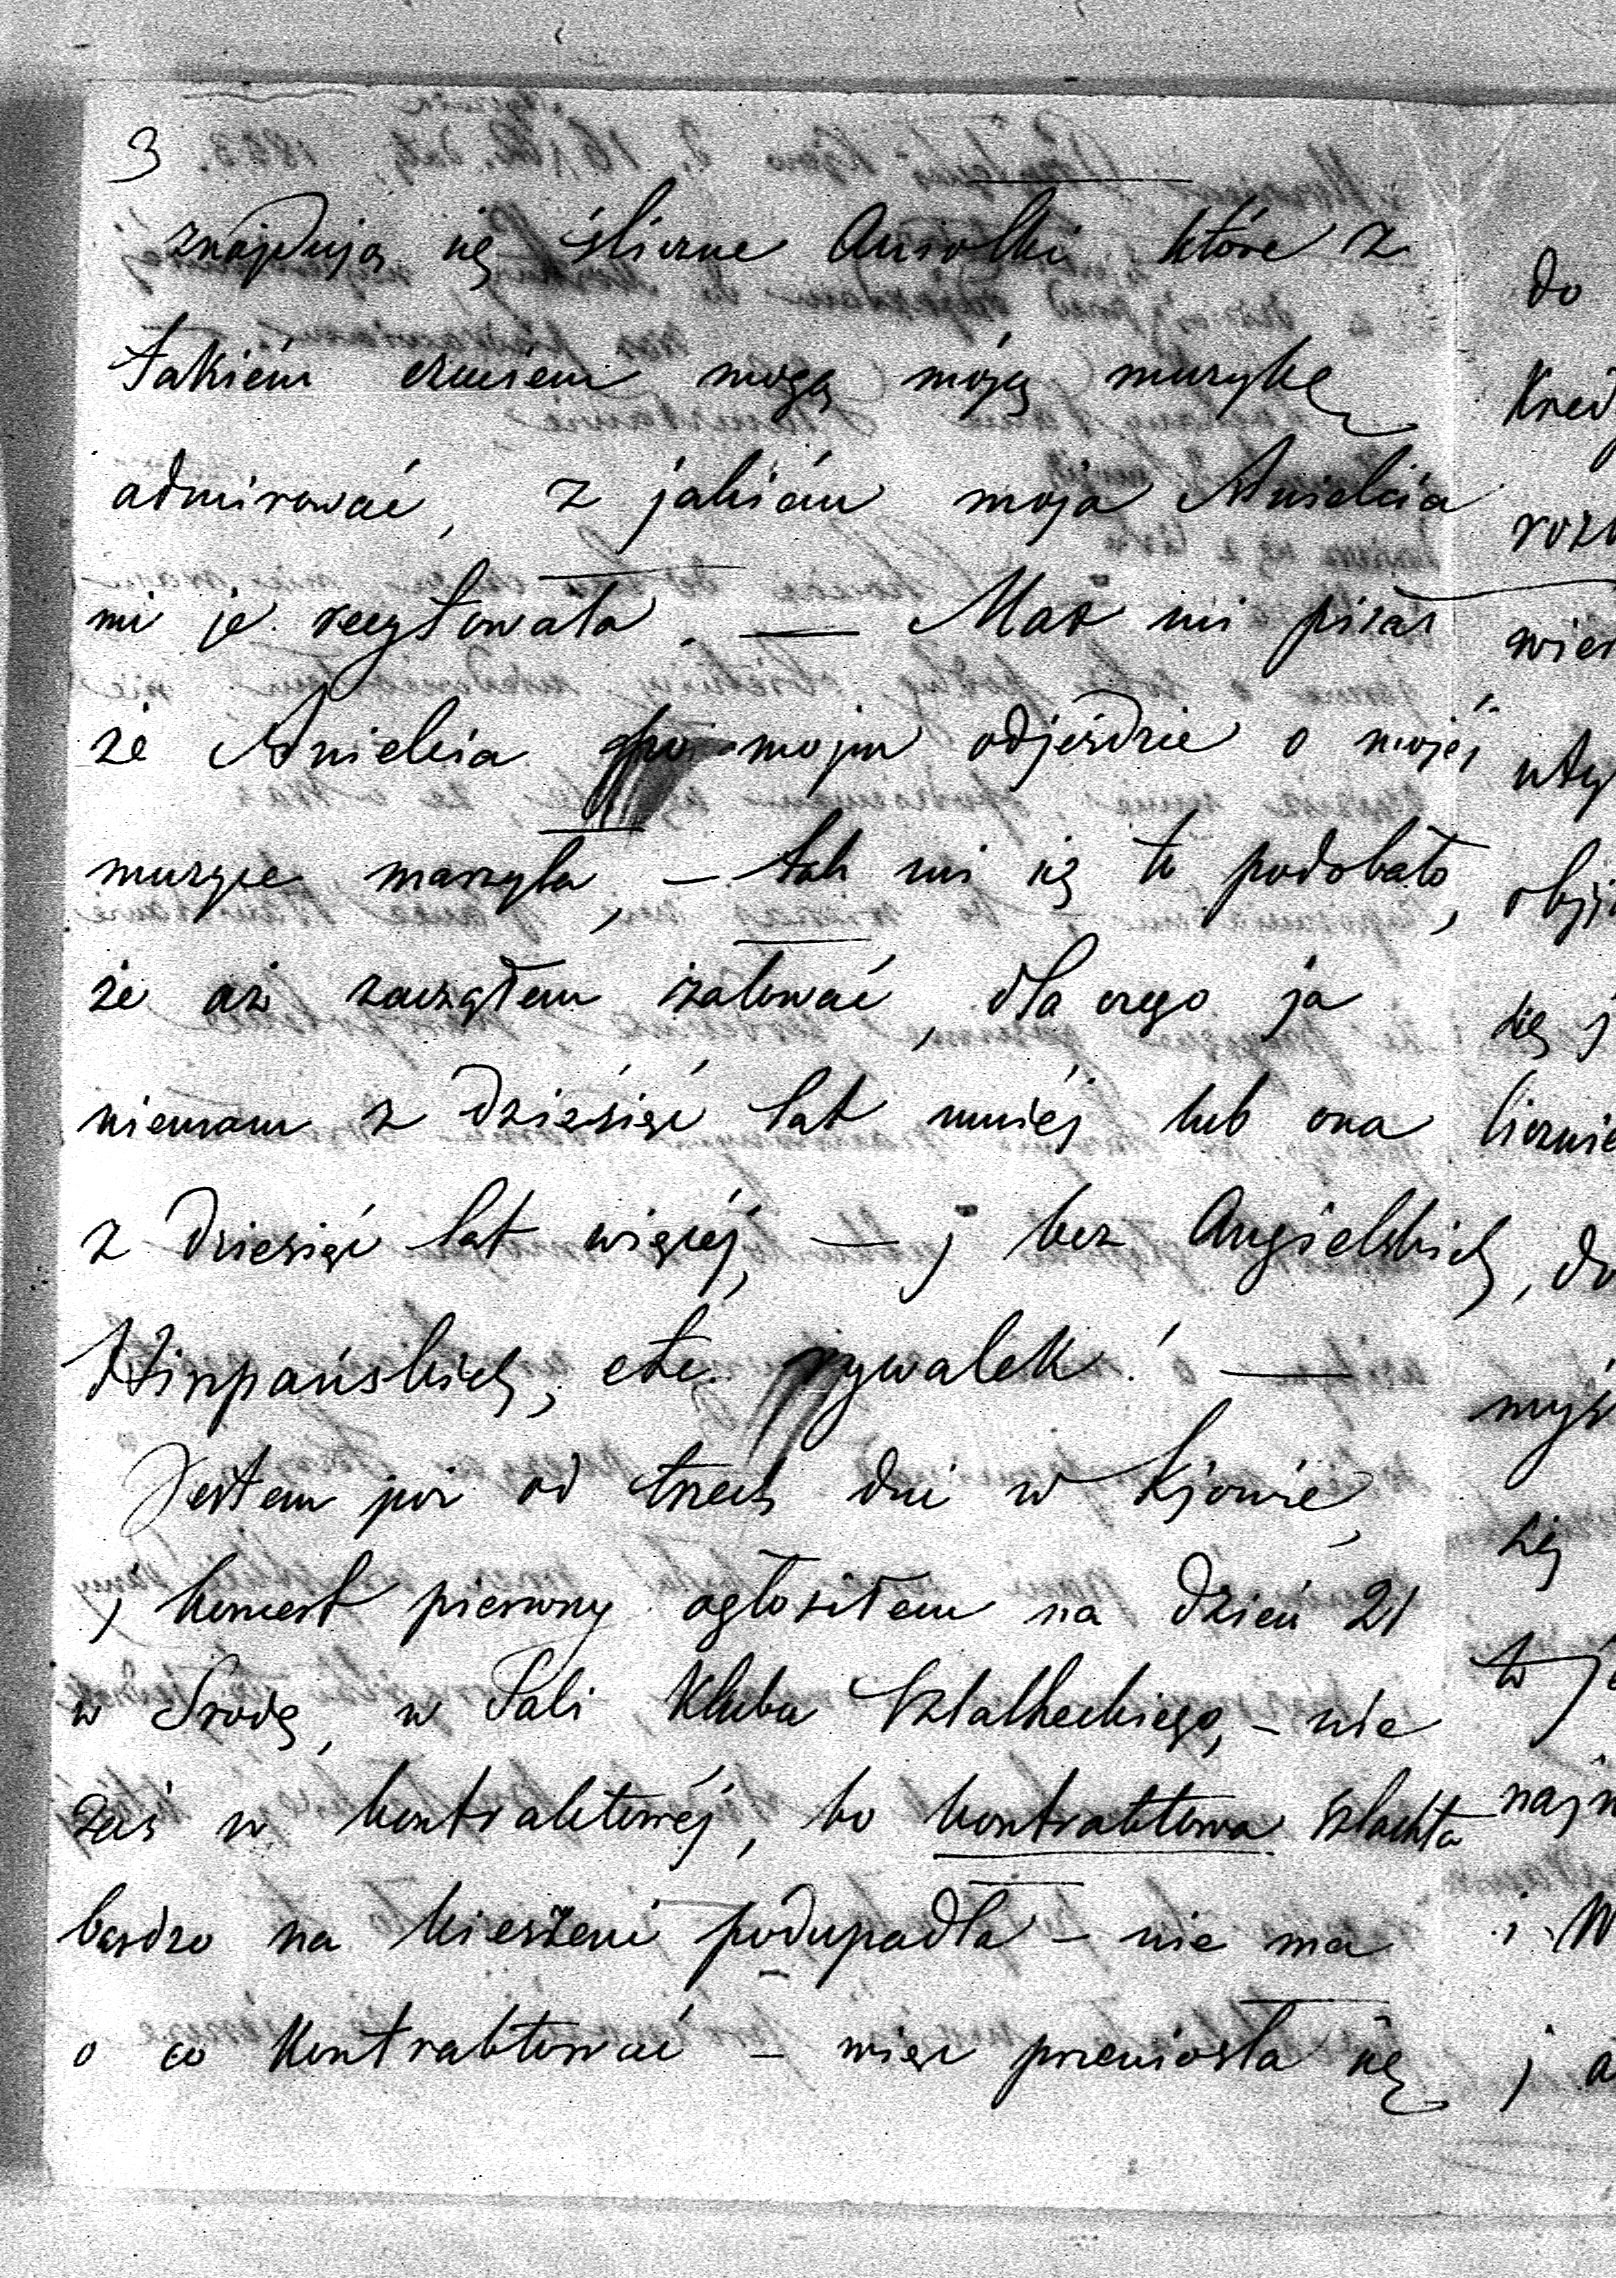 3
znajdują się śliczne Aniołki które z
takiém czuciem mogą moją muzykę
admirować, z jakiém moja Anielcia
mi je recytowała. — Max mi pisał
że Anielcia po mojm odjeździe o mojéj
muzyce marzyła, — tak mi się to podobało,
że aż zacząłem żałować, dla czego ja
niemam z dziesięć lat mniéj lub ona
z dziesięć lat więcéj, — j bez Angielskich,
Hiszpańskich, etc. rywalek! —
Jestem już od trzech dni w Kijowie,
j koncert pierwszy ogłosiłem na dzień 21
w Srodę, w Sali Klubu Szlacheckiego, — nie
zaś w kontraktowéj, bo kontraktowa szlachta
bardzo na kieszeni podupadła — nie ma
o co kontraktować — więc przeniosła się
do
wie
się j
licznie
do
myś
się
to je
naj
i W
j a